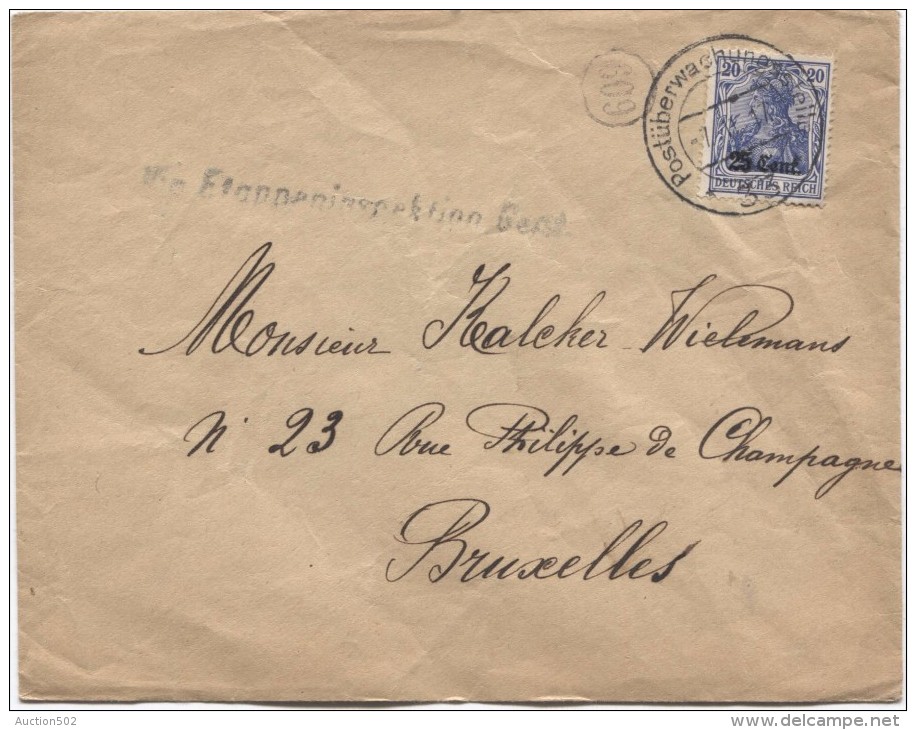 609
Postüberwachungsstelle
20 20
25 Cent.
DEUTSCHES REICH
Via Etappeninspektion Gent.
Monsieur Kalcker-Wielemans
N° 23 Rue Philippe de Champagne
Bruxelles
Auction502
delcampe.net